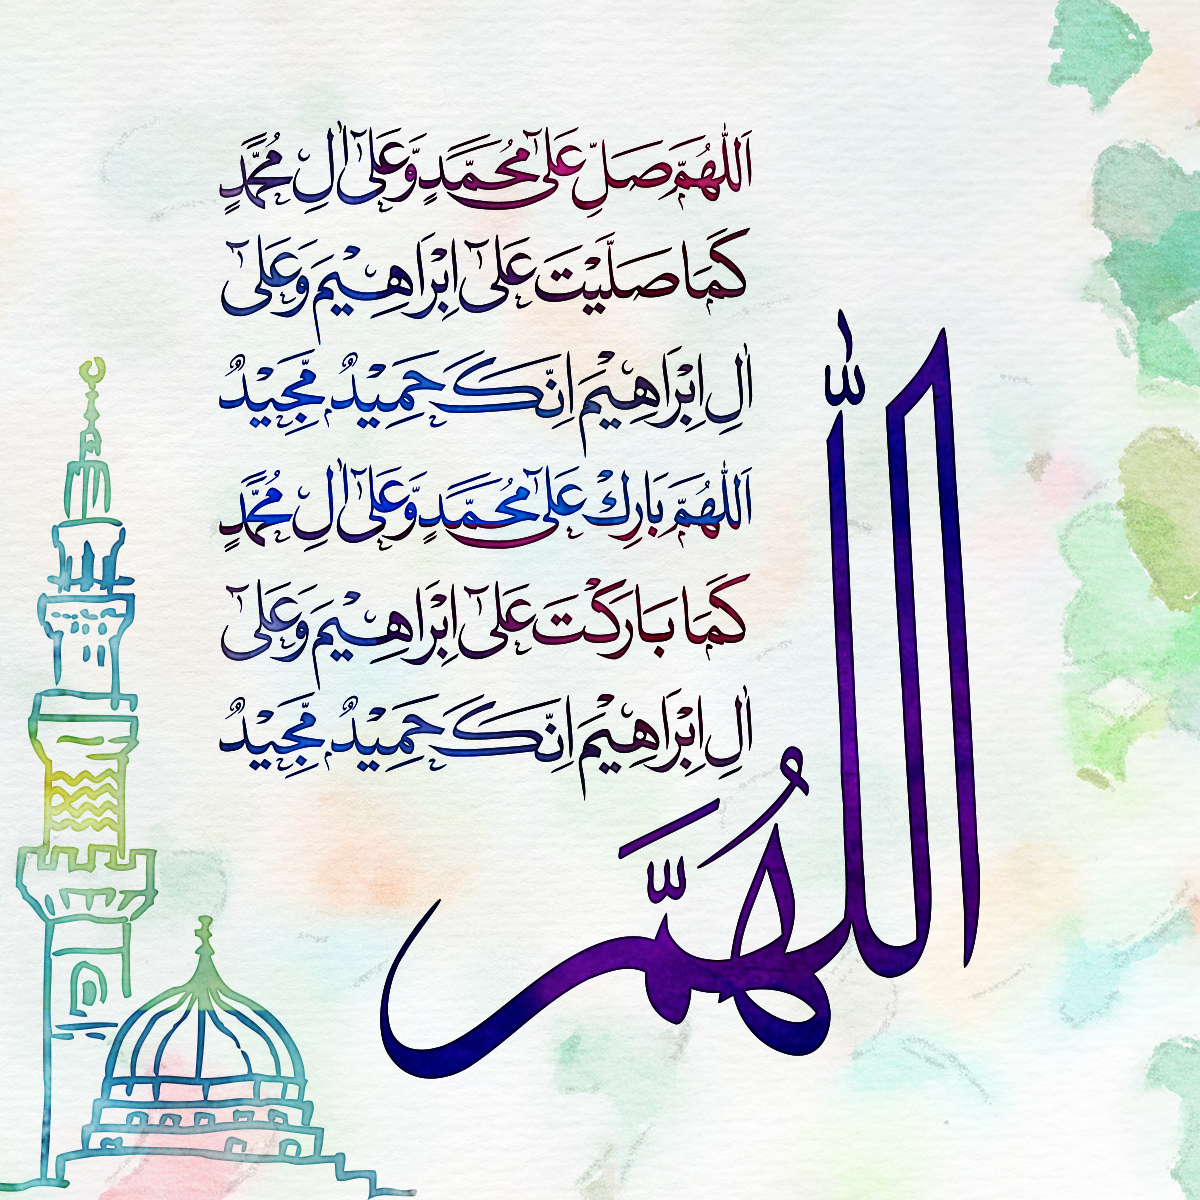 اَللّٰهُمَّ صَلِّ عَلٰى مُحَمَّدٍ وَّعَلٰٓى اٰلِ مُحَمَّدٍ
كَمَا صَلَّيْتَ عَلٰٓى اِبْرَاهِيْمَ وَعَلٰٓى
اٰلِ اِبْرَاهِيْمَ اِنَّكَ حَمِيْدٌ مَّجِيْدٌ
اَللّٰهُمَّ بَارِكْ عَلٰى مُحَمَّدٍ وَّعَلٰٓى اٰلِ مُحَمَّدٍ
كَمَا بَارَكْتَ عَلٰٓى اِبْرَاهِيْمَ وَعَلٰٓى
اٰلِ اِبْرَاهِيْمَ اِنَّكَ حَمِيْدٌ مَّجِيْدٌ
اللّٰهُمَّ